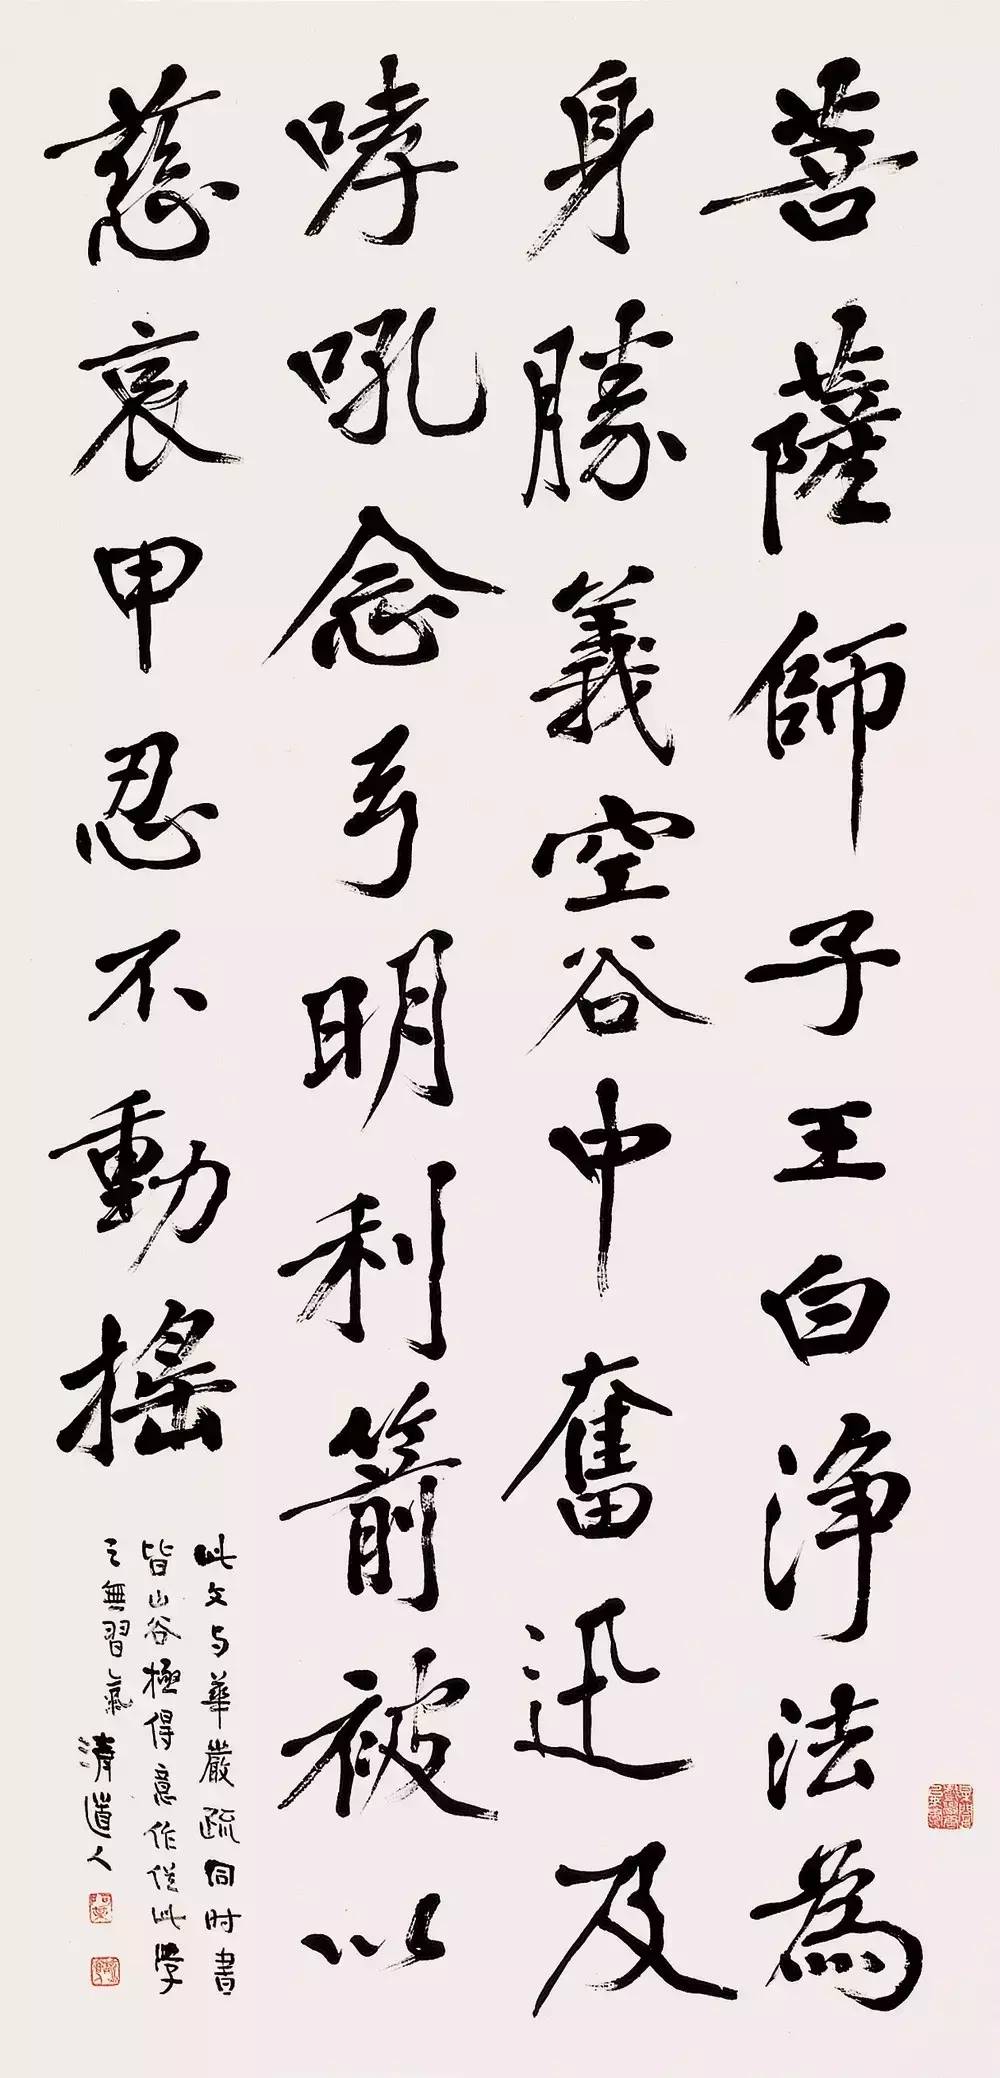 菩薩師子王白浄法為
身勝義空谷中奮迅及
哮吼念弓明利箭被以
慈哀甲忍不動搖
此文与華嚴疏同時書
皆山谷極得意作從此學
之無習氣 清道人